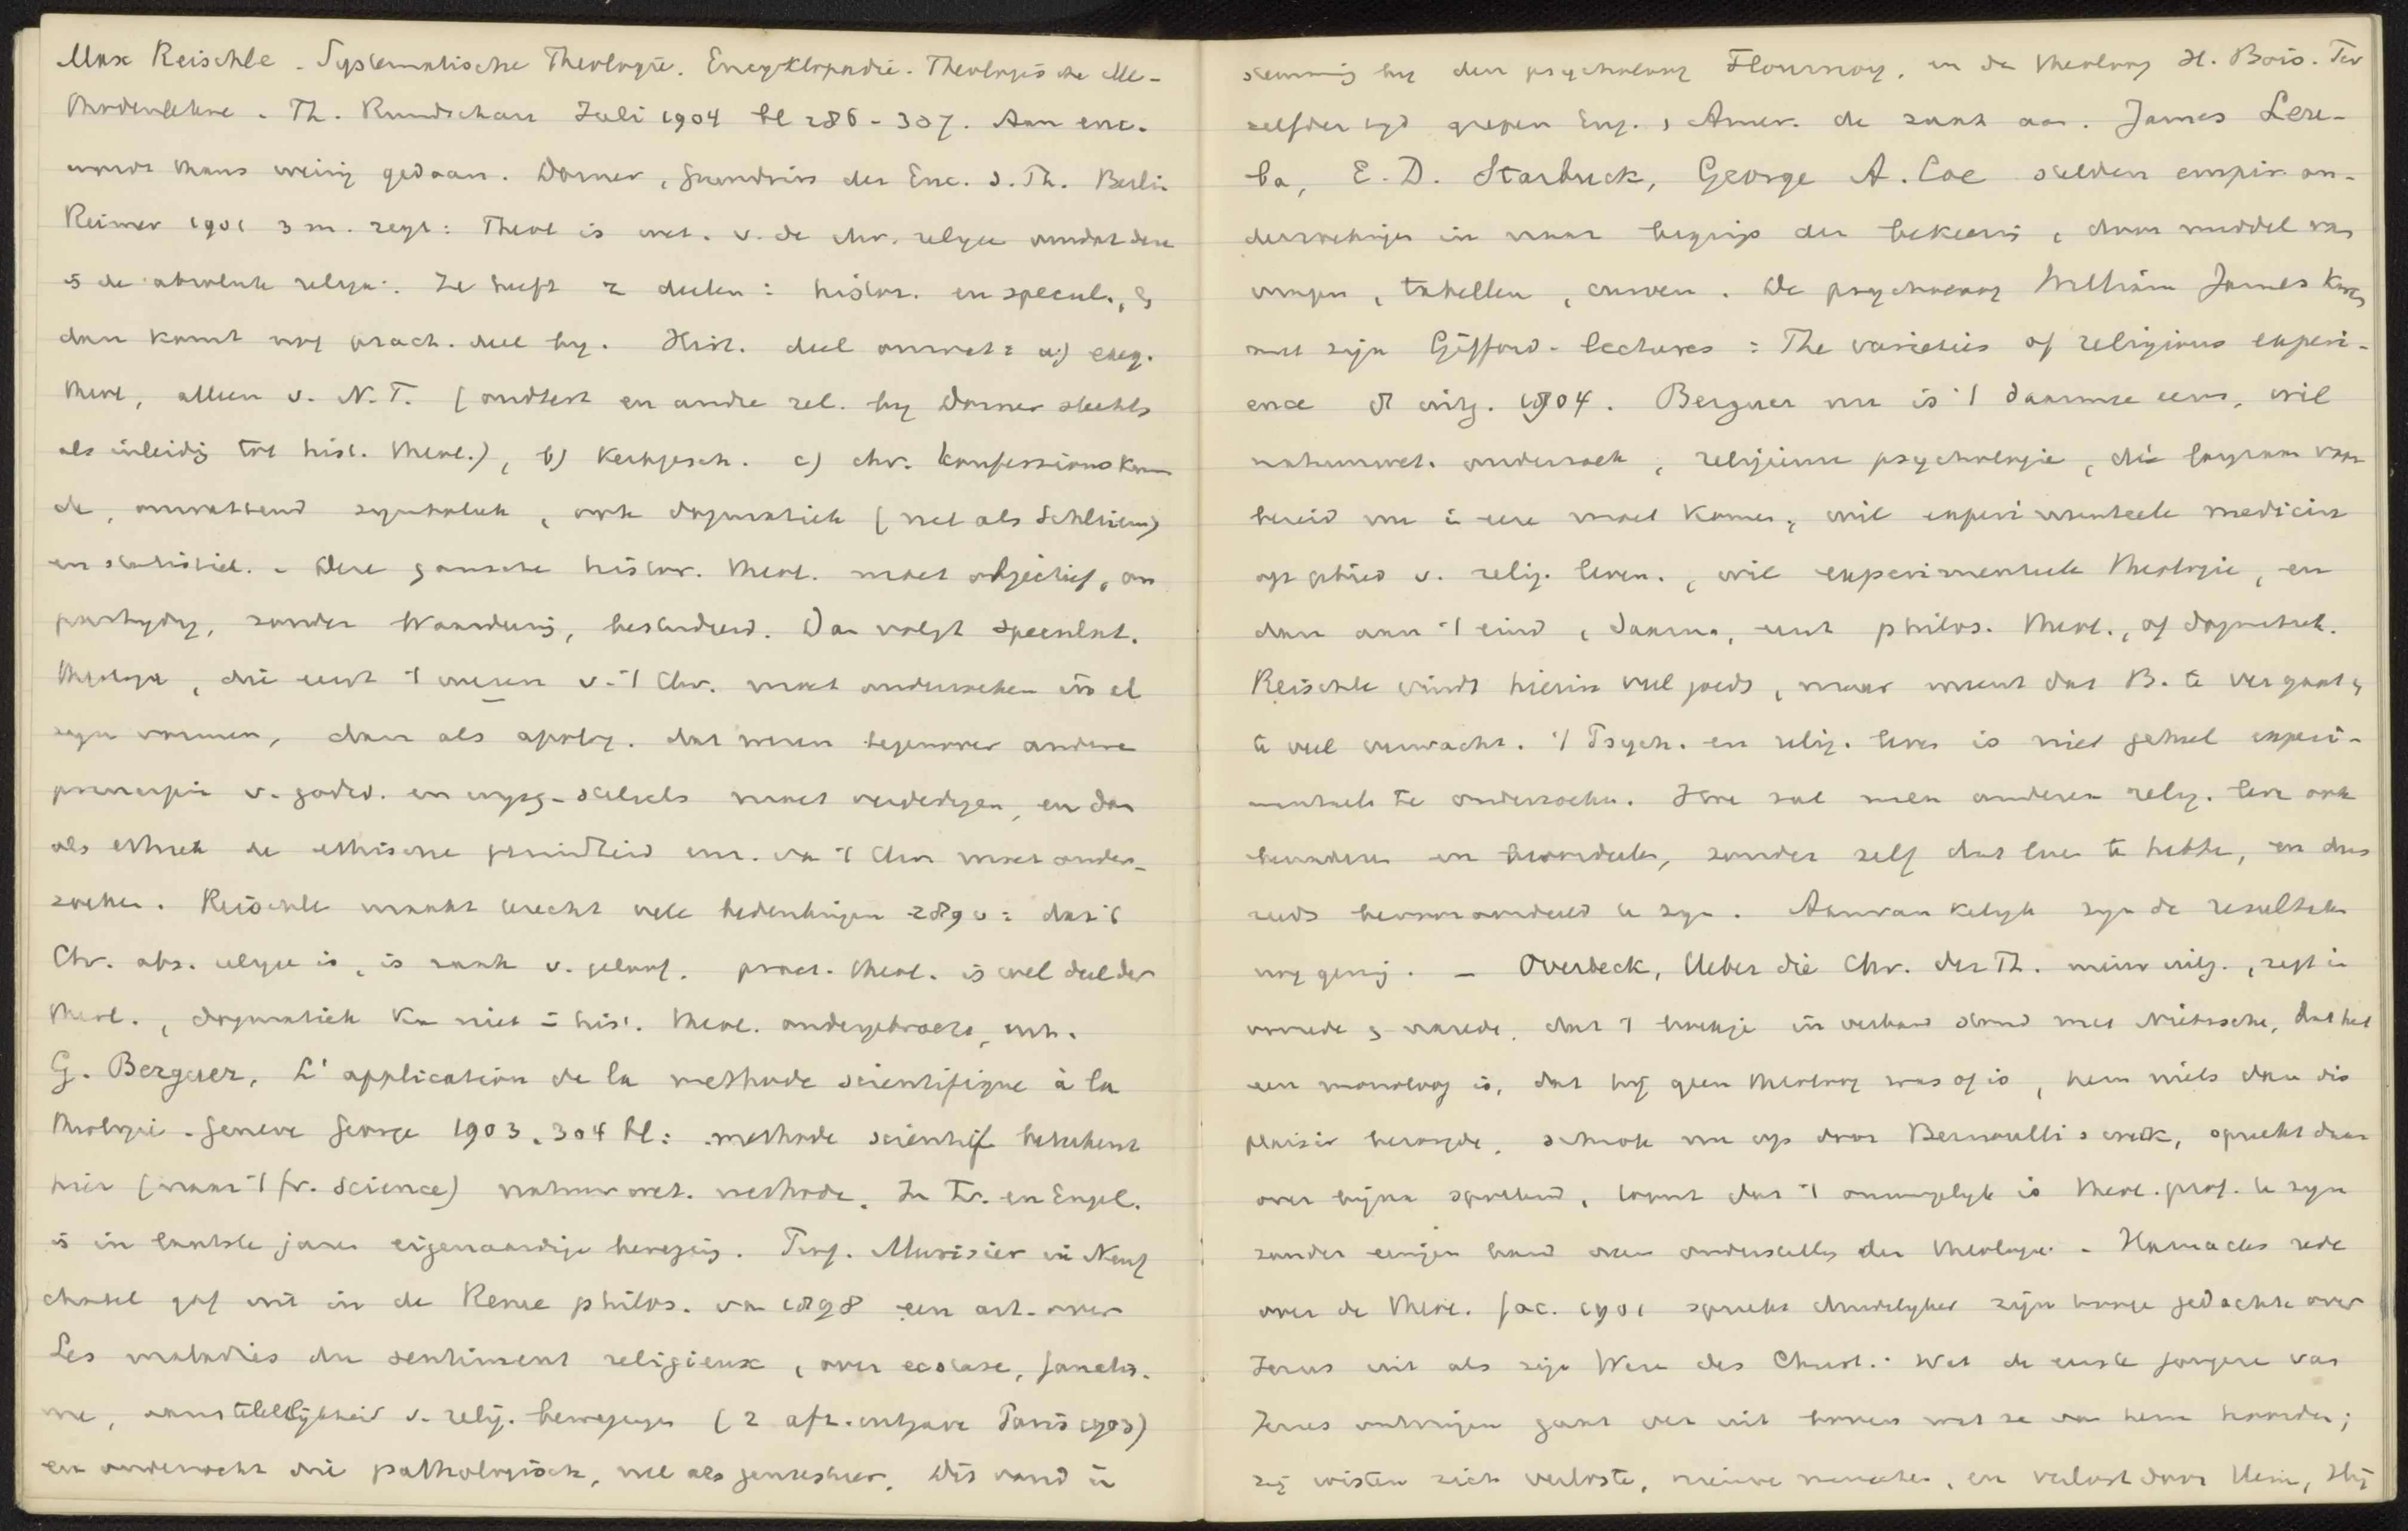 Max Reischle. Systematische Theologie. Encyklopädie. Theologische Me-
thodenlehre. Th. Rundschau Juli 1904 bl 286-307. Aan enc.
wordt thans weinig gedaan. Dorner, Grundriss der Enc. d. Th. Berlin
Reimer 1901 3 m. zegt: Theol is wet. v. de chr. religie omdat deze
is de absolute religie. Ze heeft 2 deelen: histor. en specul., &
dan komt nog pract. deel by. Hist. deel omvat: a) exeg.
theol, alleen v. N.T. (oudtest en andre rel. by Dorner slechts
als inleidig tot hist. theol.), b) Kerkgesch. c) chr. Konfessionskun
de, omvattend symboliek, ook dogmatiek (net als Schleierm)
en statistiek. - Deze gansche histor. theol. moet objectief, on
partydig, zonder Waardeering, bestudeerd. Dan volgt speculat.
theologie, die eerst 't wezen v. 't Chr. moet onderzoeken in al
zyn vormen, dan als apolog. dat wezen tegenover andere
principiën v. godsd. en wysg-stelsels moet verdedigen, en dan
als ethiek de ethische grondheid enz. van 't Chr moet onder-
zoeken. Reischle maakt terecht vele bedenkingen 289 v: dat 't
Chr. abs. religie is, is zaak v. geloof. pract. theol. is wel deel der
theol., dogmatiek kan niet in hist. theol. ondergebracht, enz.
G. Berguer, L'application de la methode scientifique à la
theologie. Geneve George 1903. 304 bl: methode scientif beteekent
hier (naar 't fr. Science) natuurwet. methode. In Fr. en Engel.
is in laatste jaren eigenaardige beweging. Prof. Murisier in Neuf
chatel gaf uit in de Revue philos. van 1898 een art. over
Les maladies du sentiment religieux, over ecstase, fanatis-
me, aanstekelijkheid v. relig. bewegingen (2 afz. uitgave Paris 1903)
en onderzocht die pathologisch, veel als Dit vond in
stemming by den psycholoog Flournoy, en de theoloog H. Bois. Ter
zelfder tyd grepen Eng. & Amer. de zaak aan. James Leu-
ba, E. D. Starbuck, George A. Coe stelden empir. on-
derzoekingen in naar begrip der bekeering, door middel van
vragen, tabellen, curven. De psycholoog William James kwam
met zijn Gifford-lectures: The varieties of religious experi-
ence 8 uitg. 1904. Berguer nu is 't daarmee eens, wil
natuurwet. onderzoek, religieuse psychologie, die langzaam voor
bereid nu in eere moet komen, wil experimenteele medicin
op gebied v. relig. leven., wil experimenteele theologie, en
dan aan 't eind, daarna, eerst philos. theol., of dogmatiek.
Reischle vindt hierin veel goeds, maar meent dat B. te ver gaat &
te veel verwacht. 't Psych. en relig. leven is niet geheel experi-
menteel te onderzoeken. Hoe zal men anderer relig. leven ook
en beoordeelen, zonder zelf dat leven te hebben, en dus
reeds bevooroordeeld te zyn. Aanvankelyk zyn de resultaten
nog gering. - Overbeck, Ueber die Chr. der Th. nieuwe uitg., zegt in
voorrede & narede, dat 't boekje in verband stond met Nietzsche, dat het
een monoloog is, dat hij geen theoloog was of is, hem niets dan dis
plaisir bezorgde, schrok nu op door Bernoulli's werk, spreekt daar
over bijna spottend, toont dat 't onmogelyk is theol. prof. te zyn
zonder eenigen band over onderstelling der theologie. - Harnacks rede
over de theol. fac. 1901 spreekt duidelyker zijn hooge gedachte over
Jezus uit als zijn Wesen des Christ.: Wat de eerste jongeren van
Jezus ontvingen gaat ver uit boven wat ze van hem hoorden;
zij wisten zich verloste, nieuwe menschen, en verlost door Hem, Hij